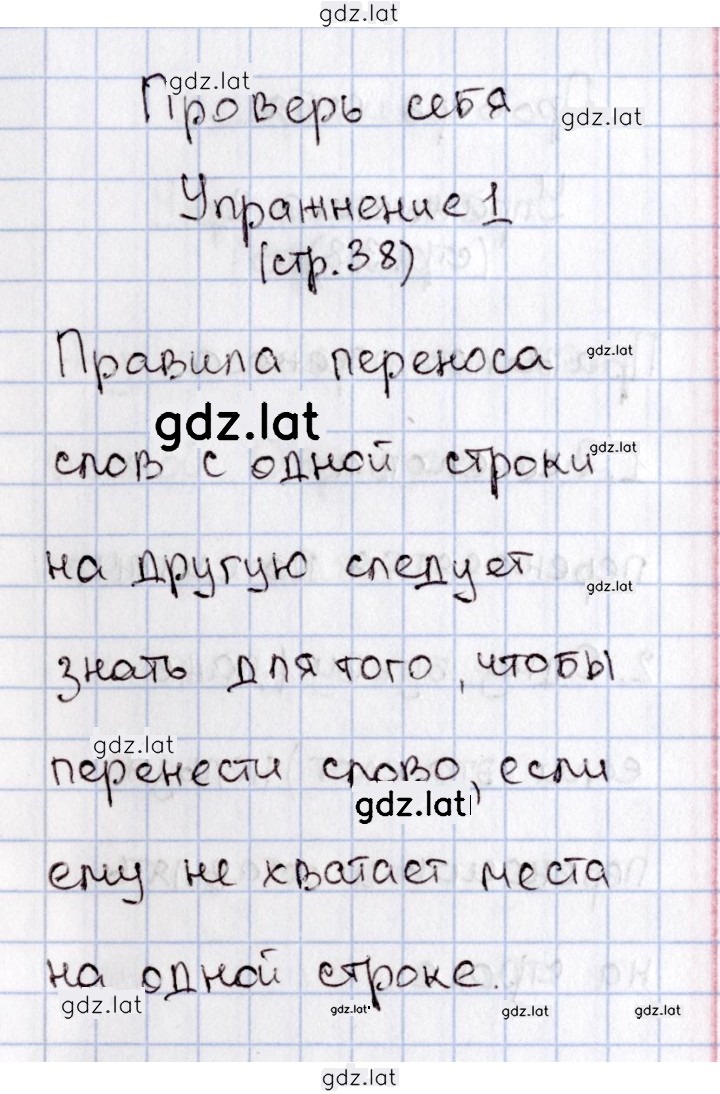 gdz.lat
gdz.lat
Проверь себя
gdz.lat
Упражнение 1
(стр. 38)
Правила переноса
gdz.lat
gdz.lat
gdz.lat
слов с одной строки
на другую следует
gdz.lat
знать для того, чтобы
gdz.lat
перенести слово, если
gdz.lat
ему не хватает места
на одной строке.
gdz.lat
gdz.lat
gdz.lat
gdz.lat
gdz.lat